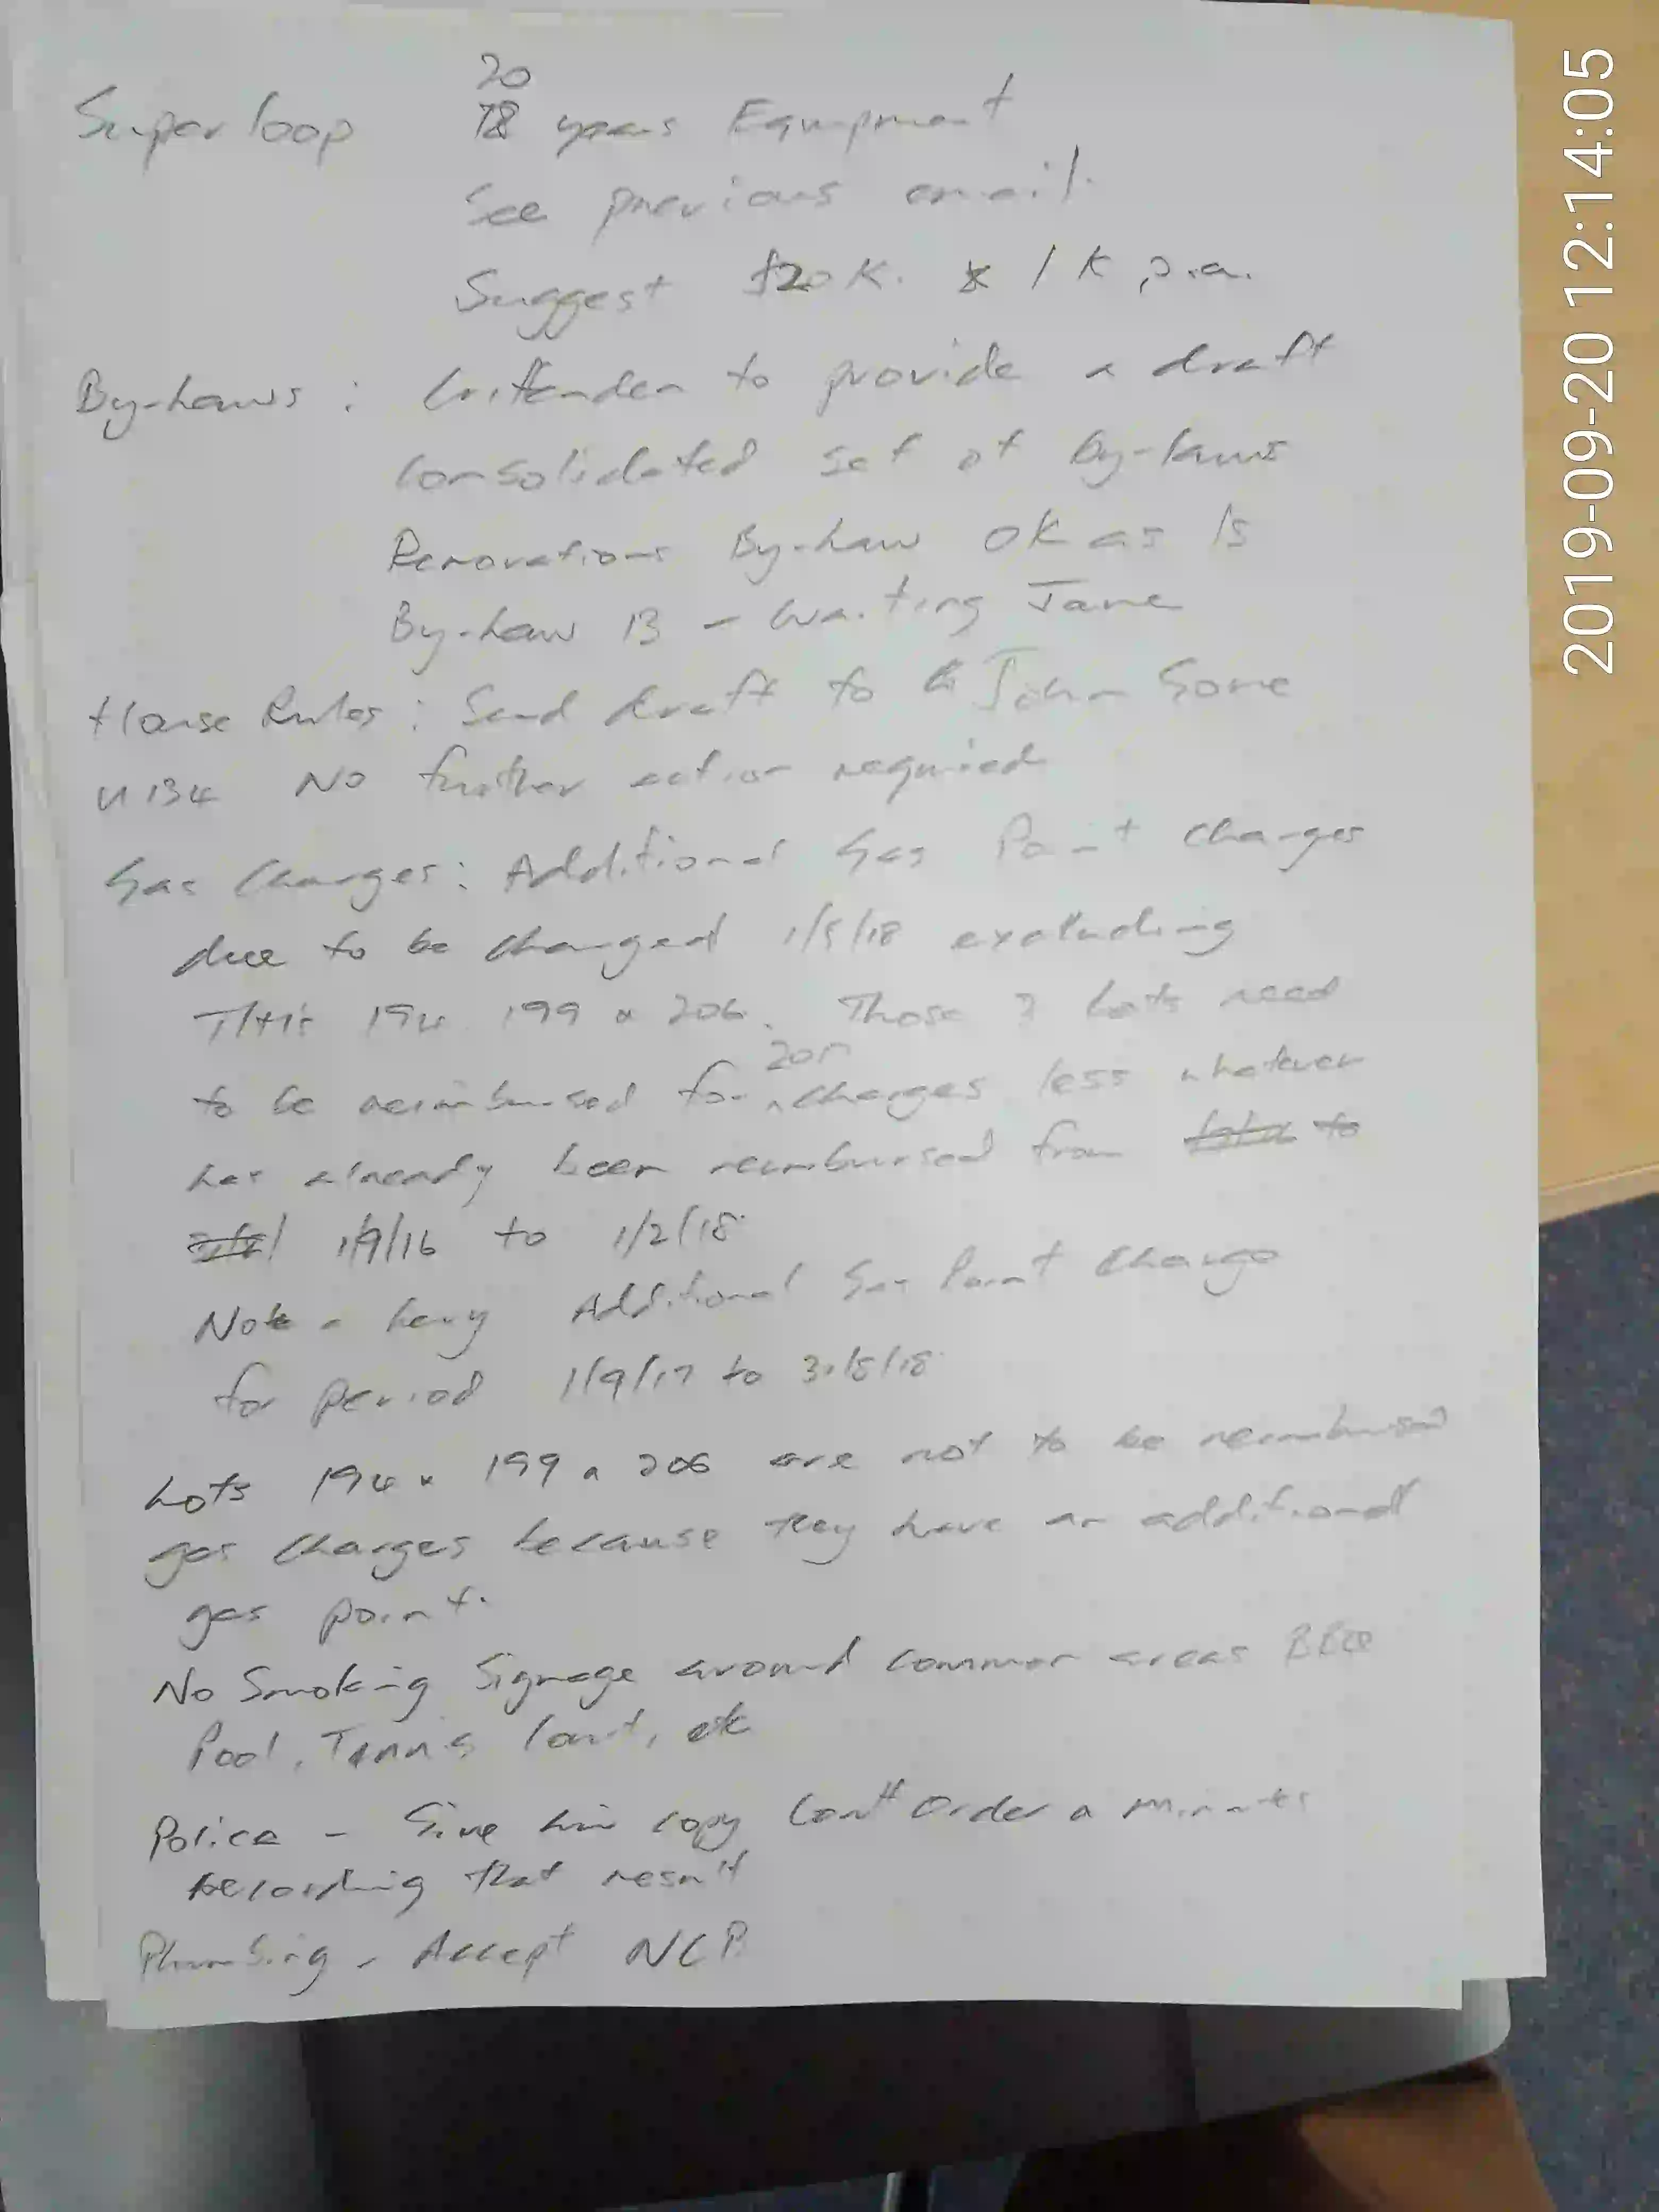 20
Superloop 18 years Equipment
See previous email.
Suggest $20K. & 1K p.a.
By-Laws : Crittenden to provide a draft
consolidated set of By-Laws
Renovations By-Law OK as Is
By-Law 13 - Waiting Jane
House Rules : Send draft to John Gore
U 134 No further action required
Gas Charges : Additional Gas Point charges
due to be charged 1/5/18 excluding
194 199 & 206. Those 3 Lots need
to be reimbursed for charges less whatever
has already been reimbursed from to
1/9/16 to 1/2/18.
Note - Levy Additional Gas Point Charge
for period 1/9/17 to 31/8/18.
Lots 194 & 199 & 206 are not to be reimbursed
gas charges because they have an additional
gas point.
No Smoking Signage around common areas BBQ
Pool, Tennis Court, etc
Police - Give him copy Court Order & Minutes
recording that result
Plumbing - Accept NCP.
2019-09-20 12:14:05